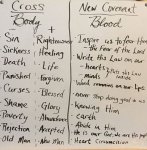 Cross
Body
New Covenant
Blood
Sin + Righteousness
Sickness + Healing
Death + Life
Punished + Forgiven
Curses + Blessed
Shame + Glory
Poverty + Abundance
Rejection + Accepted
Old Man + New Man
- Inspire us to fear Him
the fear of the Lord
- Write the Law on our
hearts
- Word
- never stop doing good to us
- Knowing Him
- earth
- Abide in Him
- He is our God we are His people
- Heart Circumcision